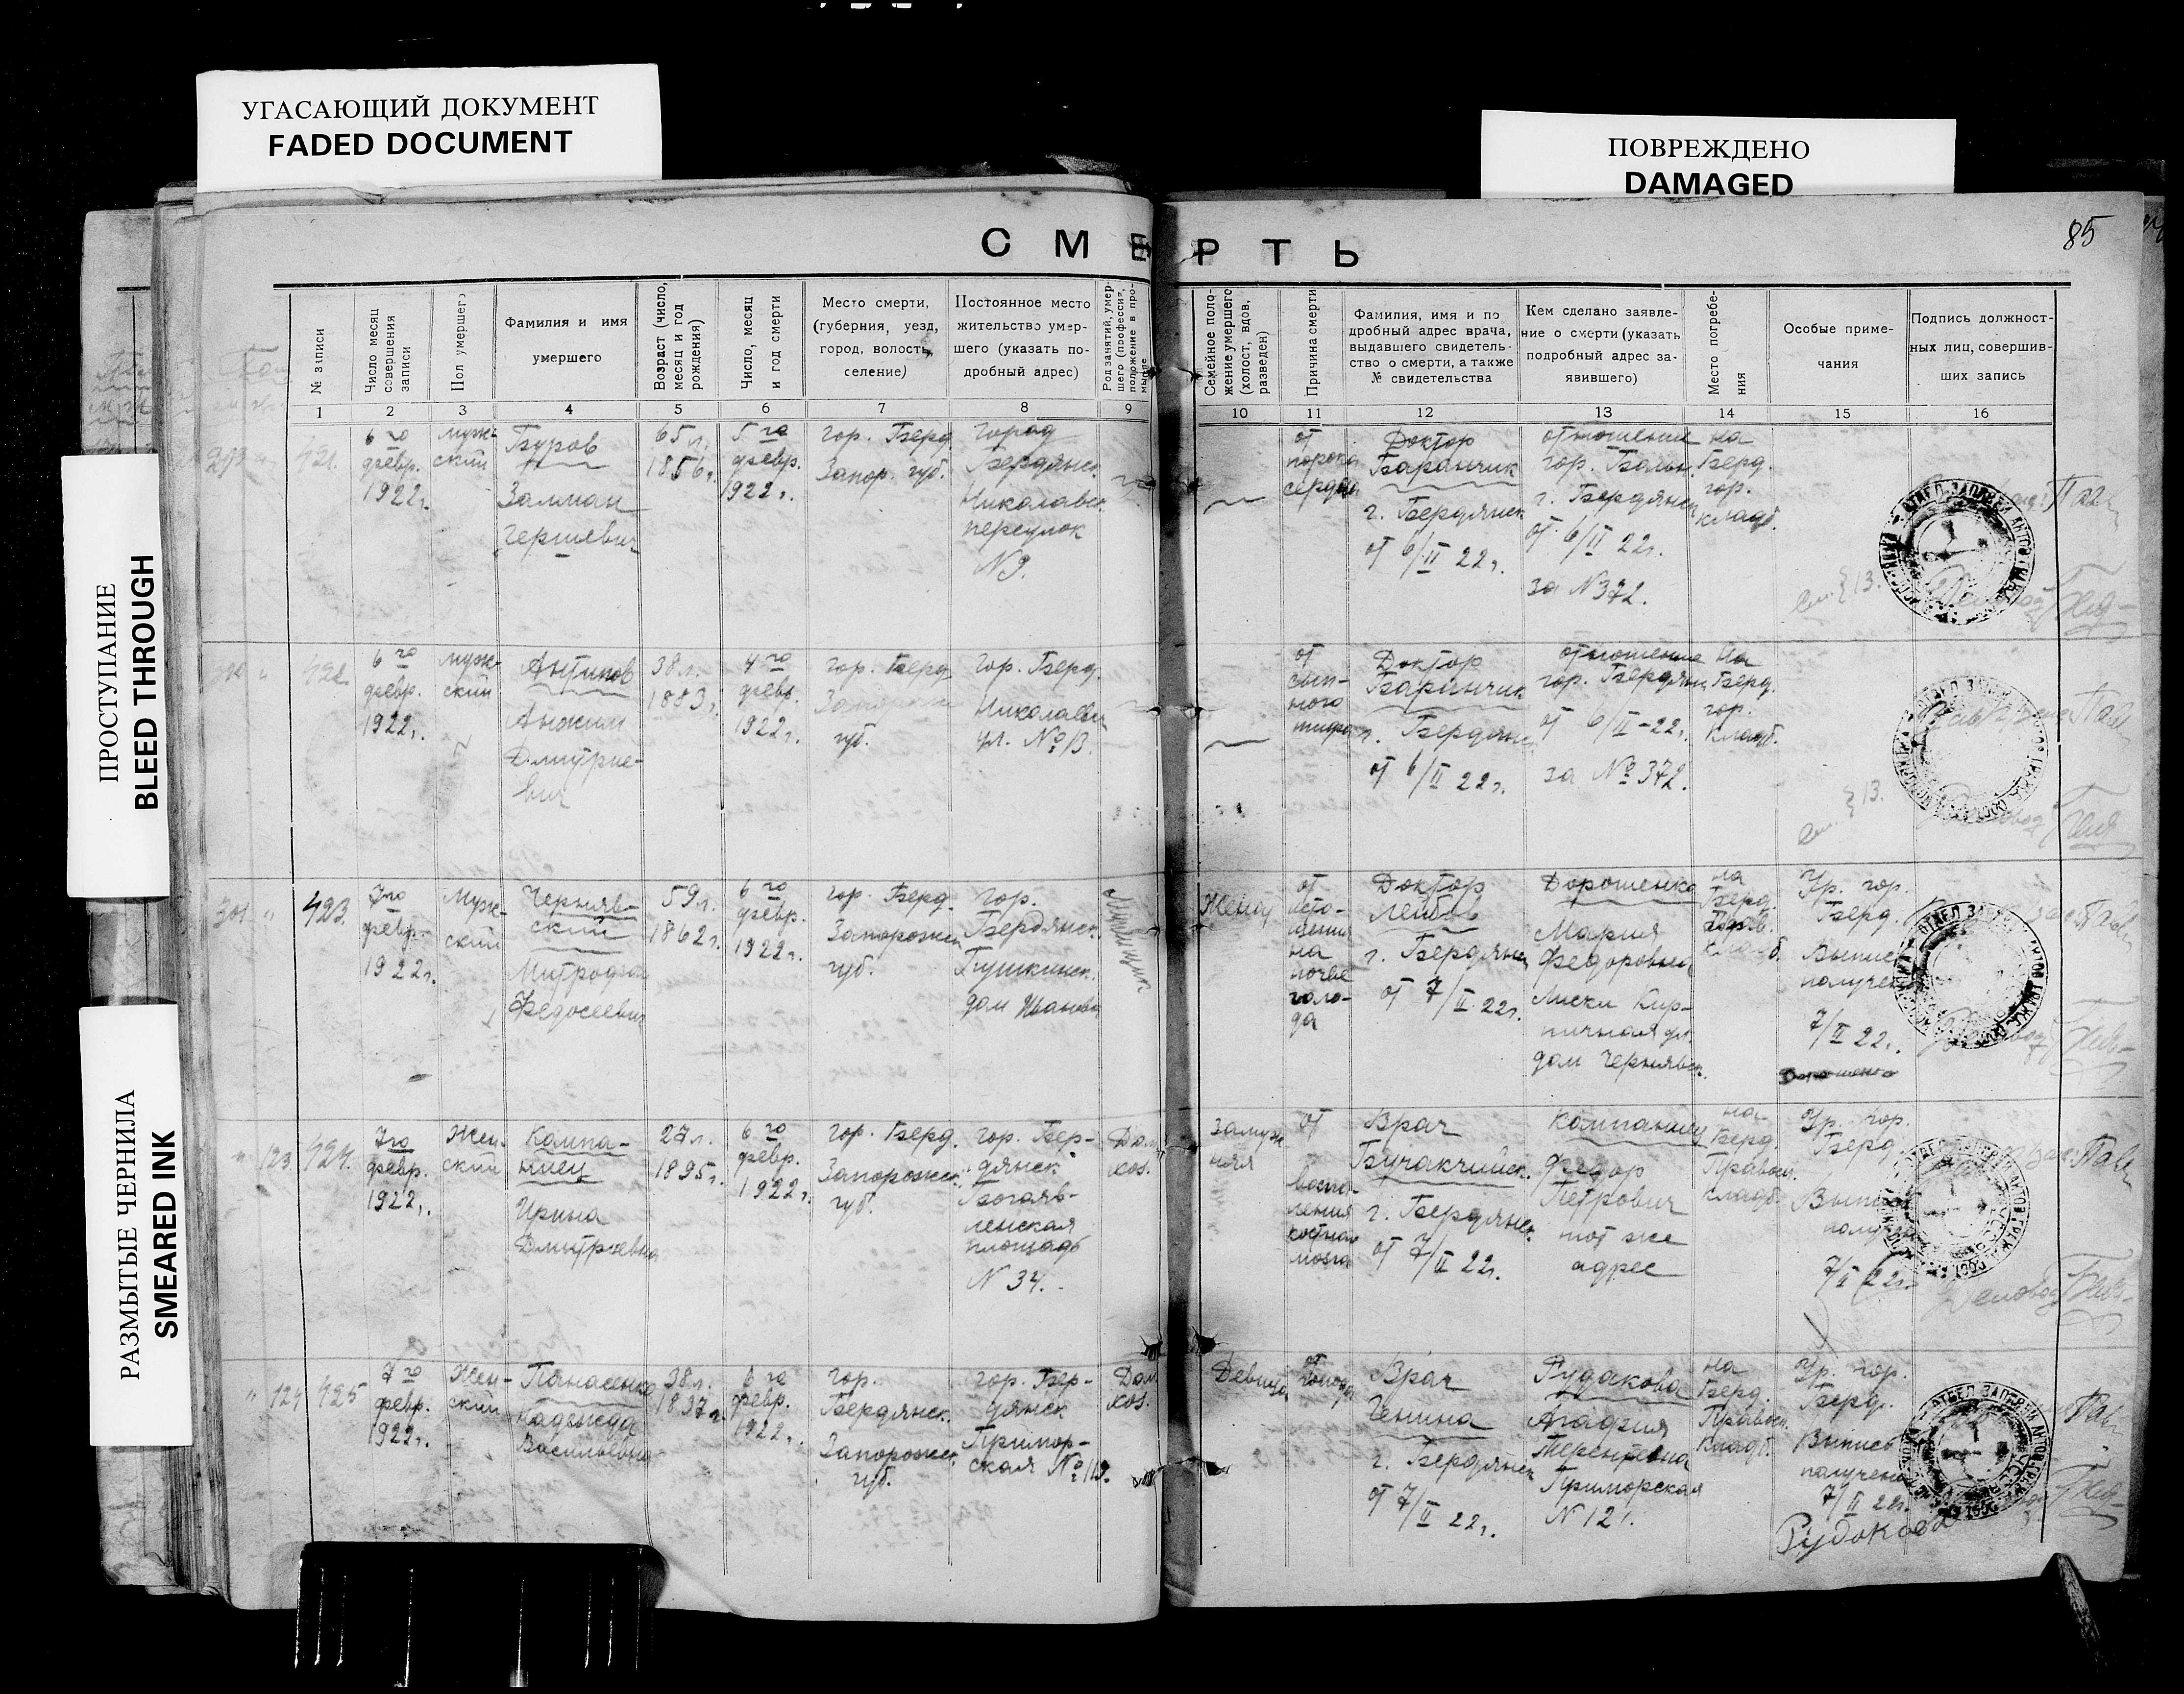 УГАСАЮЩИЙ ДОКУМЕНТ
FADED DOCUMENT
ПОВРЕЖДЕНО
DAMAGED
ПРОСТУПАНИЕ
BLEED THROUGH
РАЗМЫТЫЕ ЧЕРНИЛА
SMEARED INK
85
СМЕРТЬ
№ записи
Число месяц
совершения
записи
Пол умершего
Фамилия и имя
умершего
Возраст (число,
месяц и год
рождения)
Число, месяц
и год смерти
Место смерти,
(губерния, уезд,
город, волость,
селение)
Постоянное место
жительство умер-
шего (указать по-
дробный адрес)
Род занятий, умер-
шего (профессия,
положение в про-
мысле
Семейное поло-
жение умершего
(холост, вдов,
разведен)
Причина смерти
Фамилия, имя и по
дробный адрес врача,
выдавшего свидетель-
ство о смерти, а также
№ свидетельства
Кем сделано заявле-
ние о смерти (указать
подробный адрес за-
явившего)
Место погребе-
ния
Особые приме-
чания
Подпись должност-
ных лиц, совершив-
ших запись
1 2 3 4 5 6 7 8 9 10 11 12 13 14 15 16
421.
6го
февр.
1922г.
муж-
ский
Буров
Залман
Гершевич
65 л.
1856г.
5го
февр.
1922г.
гор. Берд
Запор. губ.
город
Бердянск
Николаевс.
переулок
N 9.
от
порока
сердца
Доктор
Баранчик
г. Бердянск
от 6/II 22г.
отношение
гор. Больн.
г. Бердянск
от 6/II 22г.
за N 372.
на
Берд.
гор.
кладб.
422
6го
февр.
1922г.
муж-
ский
Антипов
Дмитрие-
вич
38 л.
1883г.
4го
февр.
1922г.
гор. Берд
губ.
гор. Берд.
Николаевск
ул. № 13.
от
сып-
ного
тифа
Доктор
Баранчик
г. Бердянск
от 6/II 22г.
отношение
гор. Бердянск
от 6/II-22г.
за № 372.
На
Берд.
гор.
Кладб.
423.
7го
февр.
1922г.
Муж-
ский
Черняв-
ский
Митрофан
Федосеевич
59 л.
1862г.
6го
февр.
1922г.
гор. Берд.
Запорожск
губ.
гор.
Бердянск.
Пушкинск.
дом Иванова
Женат
от
исто-
щения
на
почве
голо-
да
Доктор
Лейбов
г. Бердянск
от 7/II 22г.
Дорошенко
Мария
Федоровна
Лиски Кир-
пичная ул.
дом Чернявск.
на
Берд.
Прав.
кладб.
Ур. гор.
Берд.
Выпись
получена
7/II 22г.
424.
7го
февр.
1922г.
Жен-
ский
Компа-
ниец
Ирина
Дмитриевна
27 л.
1895г.
6го
февр.
1922г.
гор. Берд.
Запорожск.
губ.
гор. Бер-
дянск
Богояв-
ленская
площадь
N 34.
Дом.
хоз.
замуж
няя
от
воспа-
ления
костного
мозга
Врач
Бучакчийск.
г. Бердянск.
от 7/II 22г.
Компаниец
Федор
Петрович
тот же
адрес
на
Берд.
Правосл.
кладб.
Ур. гор.
Берд.
Выпись
получена
7/II 22г.
425
7го
февр.
1922г.
Жен-
ский
Панасенко
Надежда
Васильевна
38 л.
6го
февр.
1922г.
гор.
Бердянск.
Запорожск.
губ.
гор. Бер-
дянск
Примор-
ская № 119.
Дом.
хоз.
Девица
от
голода
Врач
Генина
г. Бердянск
от 7/II 22г.
Рудакова
Агафия
Терентевна
Приморская
N 121.
на
Берд.
Правосл.
кладб.
Ур. гор.
Берд.
Выпись
получена
7/II 22г.
Рудокова